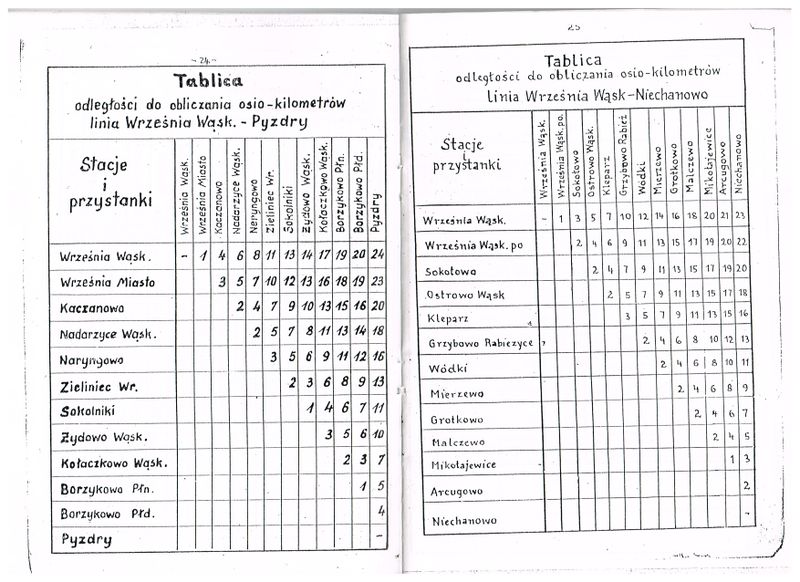 - 24 -
Tablica
odległości do obliczania osio-kilometrów
linia Września Wąsk. - Pyzdry
Stacje
i
przystanki
Września Wąsk.
Września Miasto
Kaczanowo
Nadarzyce Wąsk.
Neryngowo
Zieliniec Wr.
Sokolniki
Żydowo Wąsk.
Kołaczkowo Wąsk.
Borzykowo Płn.
Borzykowo Płd.
Pyzdry
Września Wąsk. - 1 4 6 8 11 13 14 17 19 20 24
Września Miasto 3 5 7 10 12 13 16 18 19 23
Kaczanowo 2 4 7 9 10 13 15 16 20
Nadarzyce Wąsk. 2 5 7 8 11 13 14 18
Naryngowo 3 5 6 9 11 12 16
Zieliniec Wr. 2 3 6 8 9 13
Sokolniki 1 4 6 7 11
Żydowo Wąsk. 3 5 6 10
Kołaczkowo Wąsk. 2 3 7
Borzykowo Płn. 1 5
Borzykowo Płd. 4
Pyzdry -
25
Tablica
odległości do obliczania osio-kilometrów
linia Września Wąsk-Niechanowo
Stacje
i
przystanki
Września Wąsk.
Września Wąsk.po.
Sokołowo
Ostrowo Wąsk.
Kleparz
Grzybowo Rabież
Wódki
Mierzewo
Grotkowo
Malczewo
Mikołajewice
Arcugowo
Niechanowo
Września Wąsk. - 1 3 5 7 10 12 14 16 18 20 21 23
Września Wąsk. po 2 4 6 9 11 13 15 17 19 20 22
Sokołowo 2 4 7 9 11 13 15 17 19 20
Ostrowo Wąsk 2 5 7 9 11 13 15 17 18
Kleparz 3 5 7 9 11 13 15 16
Grzybowo Rabieżyce 2 4 6 8 10 12 13
Wódki 2 4 6 8 10 11
Mierzewo 2 4 6 8 9
Grotkowo 2 4 6 7
Malczewo 2 4 5
Mikołajewice 1 3
Arcugowo 2
Niechanowo -